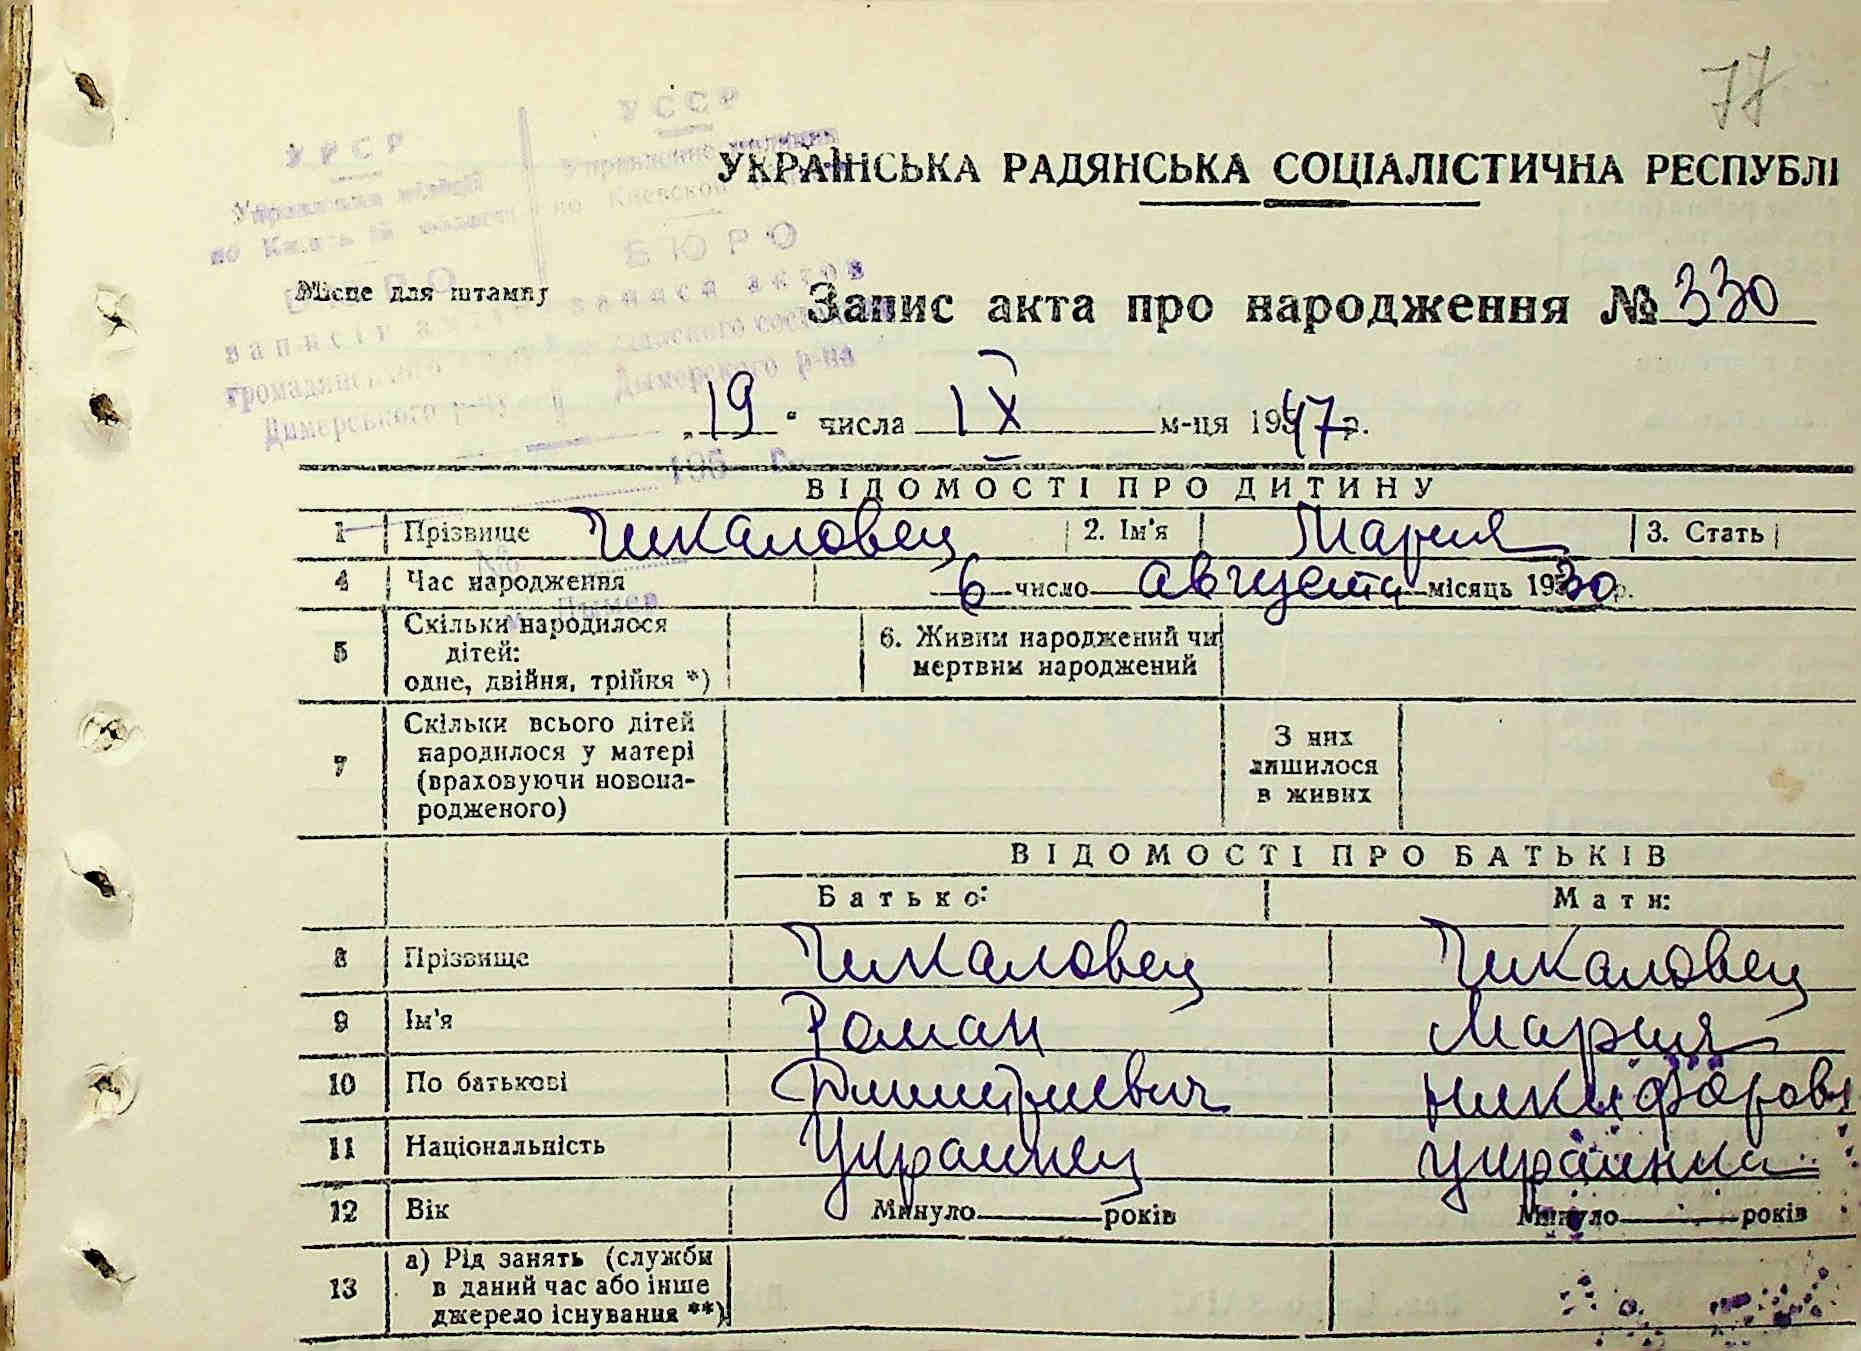 77
УРСР
УССР
Управління міліції
Управление милиции
по Київській області
по Киевской
БЮРО
БЮРО
УКРАЇНСЬКА РАДЯНСЬКА СОЦІАЛІСТИЧНА РЕСПУБЛІ
Місце для штампу
записів
записи актов
громадянського
гражданского
Димерського р-ну
Дымерского р-на
195
Запис акта про народження № 330
„19“ числа IX м-ця 1947 р.
ВІДОМОСТІ ПРО ДИТИНУ
1 Прізвище Чикаловец 2. Ім'я Мария 3. Стать
№
4 Час народження 6 число августа місяць 1930 р.
Дымер
5 Скільки народилося
дітей:
одне, двійня, трійня *)
6. Живим народжений чи
мертвим народжений
7 Скільки всього дітей
народилося у матері
(враховуючи новона-
родженого)
З них
лишилося
в живих
ВІДОМОСТІ ПРО БАТЬКІВ
Батько: Мати:
8 Прізвище Чикаловец Чикаловец
9 Ім'я Роман Мария
10 По батькові Дмитриевич Никифоров
11 Національність Украинец украинка
12 Вік Минуло років Минуло років
13 а) Рід занять (служби
в даний час або інше
джерело існування **)